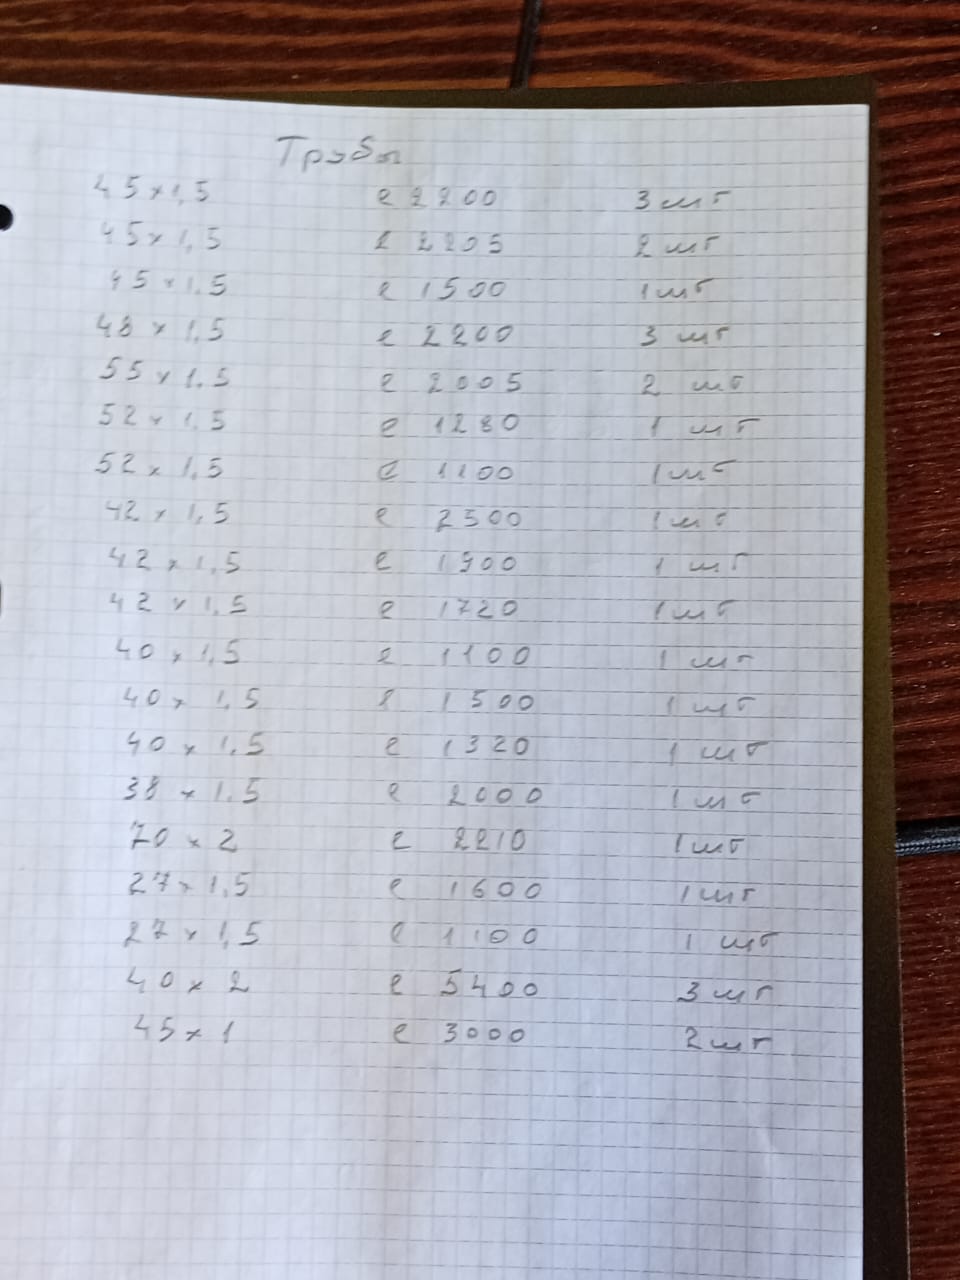 Трубы
45×1,5 ℓ 2200 3 шт
45×1,5 ℓ 2205 2 шт
45×1,5 ℓ 1500 1 шт
48×1,5 ℓ 2200 3 шт
55×1,5 ℓ 2005 2 шт
52×1,5 ℓ 1280 1 шт
52×1,5 ℓ 1100 1 шт
42×1,5 ℓ 2500 1 шт
42×1,5 ℓ 1900 1 шт
42×1,5 ℓ 1720 1 шт
40×1,5 ℓ 1100 1 шт
40×1,5 ℓ 1500 1 шт
40×1,5 ℓ 1320 1 шт
38×1,5 ℓ 2000 1 шт
70×2 ℓ 2210 1 шт
27×1,5 ℓ 1600 1 шт
27×1,5 ℓ 1100 1 шт
40×2 ℓ 5400 3 шт
45×1 ℓ 3000 2 шт